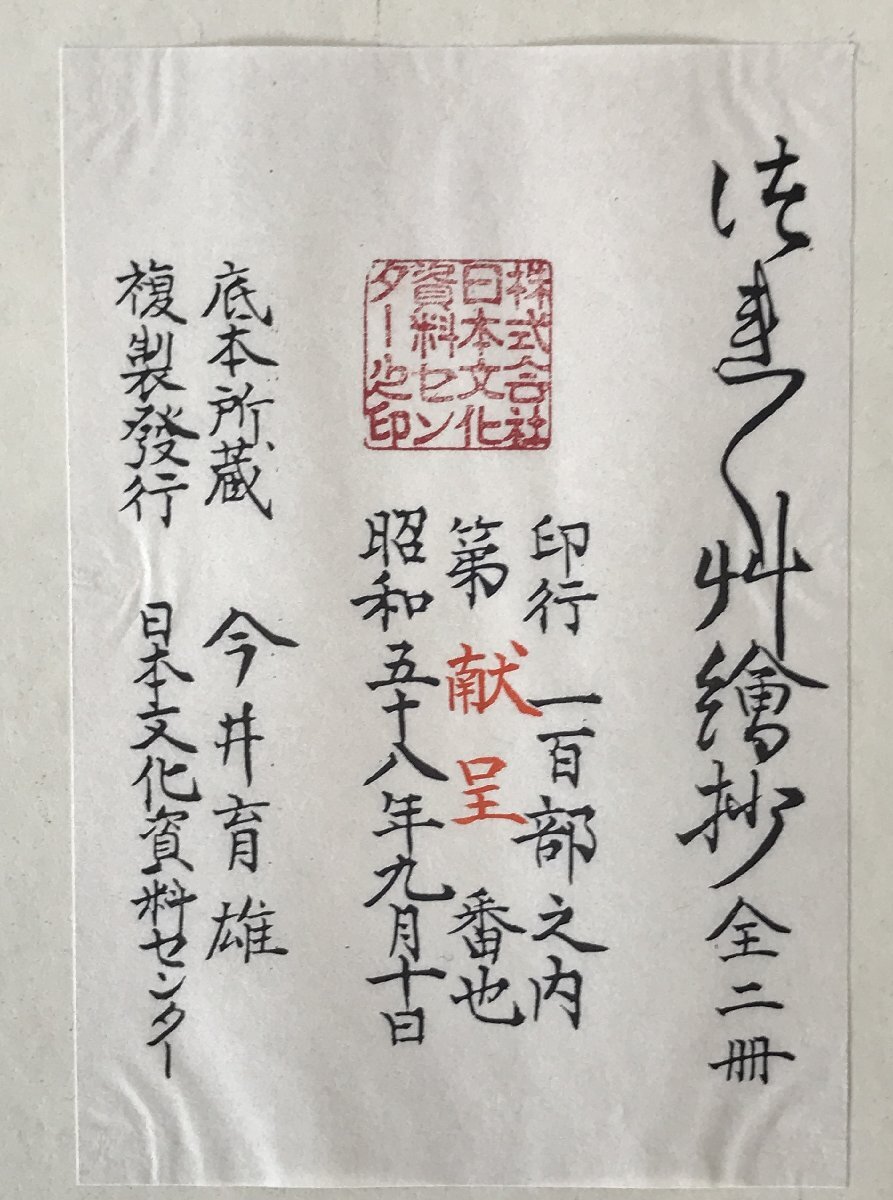 つれ〳〵艸繪抄 全二冊
印行 一百部之内
第 献呈 番也
昭和五十八年九月十日
株式会社
日本文化
資料セン
ター之印
底本所蔵 今井育雄
複製發行 日本文化資料センター